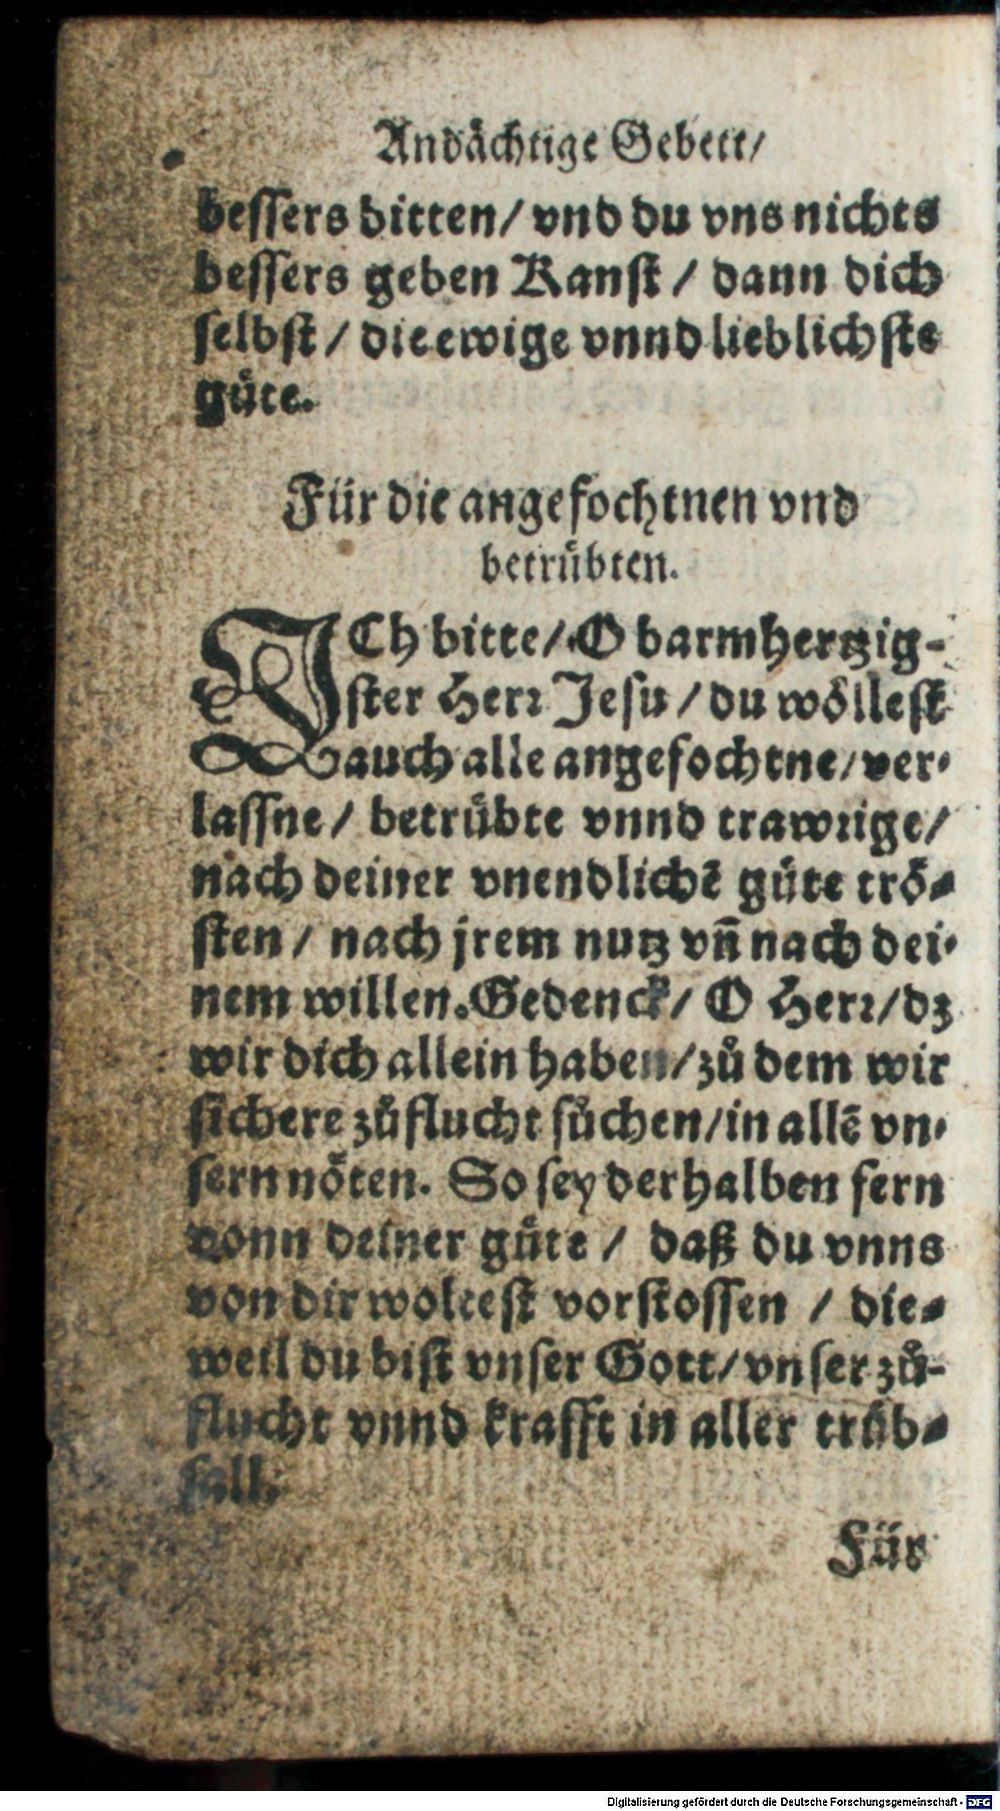 Andächtige Gebett/
bessers bitten/ vnd du vns nichts
bessers geben Kanst / dann dich
selbst / die ewige vnnd lieblichste
güte.
Für die angefochtnen vnd
betrübten.
ICh bitte/ O barmhertzig-
ster Herr Jesu / du wöllest
auch alle angefochtne/ ver-
lassne / betrübte vnnd trawrige/
nach deiner vnendlichē güte trö-
sten / nach jrem nutz vn̄ nach dei-
nem willen. Gedenck/ O Herr/ dz
wir dich allein haben/ zů dem wir
sichere zůflucht sůchen/ in allē vn-
sern nöten. So sey derhalben fern
vonn deiner güte / daß du vnns
von dir woltest vorstossen / die-
weil du bist vnser Gott/ vnser zů-
flucht vnnd krafft in aller trüb-
sall.
Für
Digitalisierung gefördert durch die Deutsche Forschungsgemeinschaft - DFG